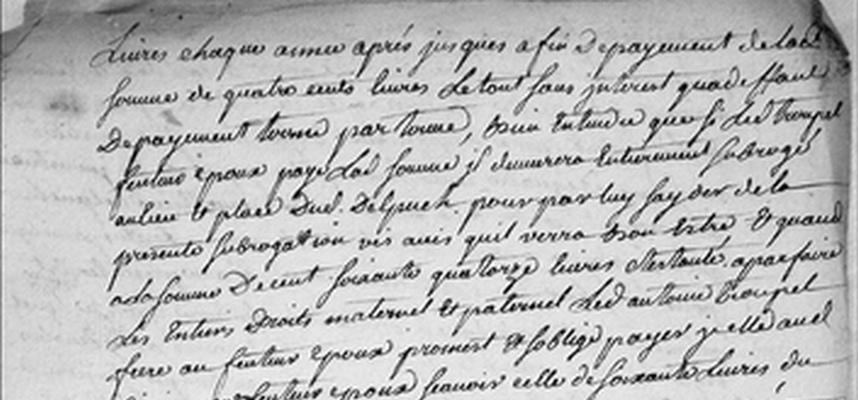 Livres chaque année aprés jusques a fin De payement de lad
somme de quatre cents livres Le tout sans interest qua deffaut
De payement terme par terme, bien Entendu que si Led Troupel
futeur Epoux paye Lad somme il demurera Entierement subrogé
au lieu Et place Dud. Delpuech pour par luy sayder de la
presente subrogation vis avis quil verra bon Estre Et quand
a la somme De cent soixante quatorze livres Restante. a parfaire
Les Entiers Droits maternel Et paternel Led antoine Troupel
frere au futeur Epoux promest Et soblige payer jcelle aud
futeur epoux scavoir celle de soixante Livres du